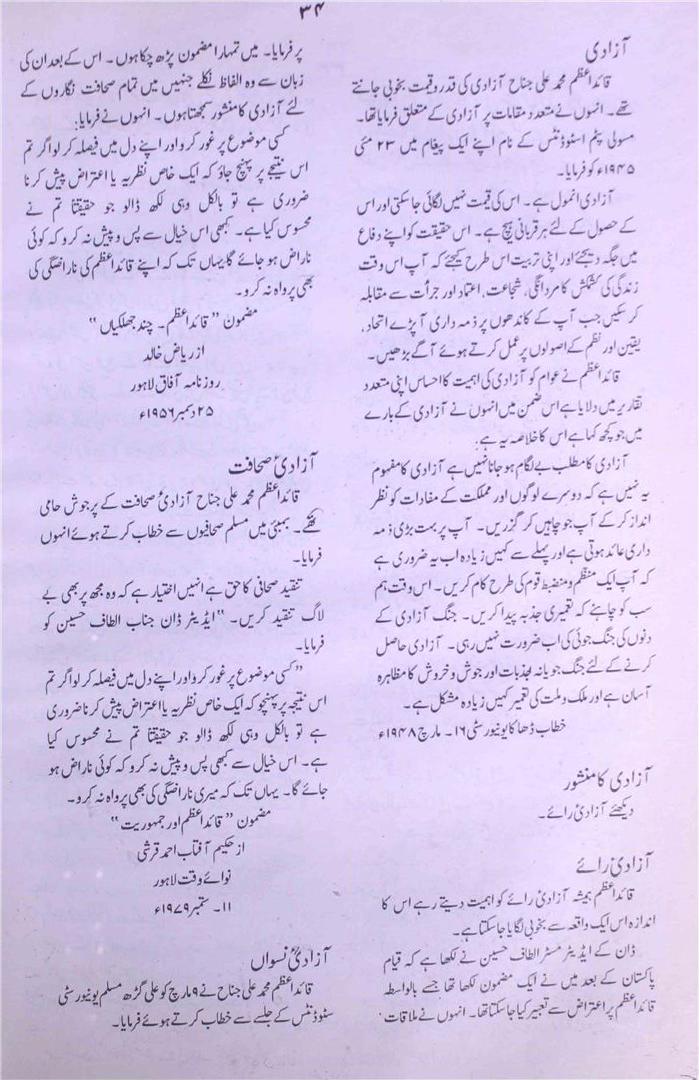 ۳۴
آزادی
قائداعظم محمد علی جناح آزادی کی قدر و قیمت بخوبی جانتے
تھے۔ انہوں نے متعدد مقامات پر آزادی کے متعلق فرمایا تھا۔
مسولی پٹم اسٹوڈنٹس کے نام اپنے ایک پیغام میں ۲۳ مئی
۱۹۴۵ء کو فرمایا۔
آزادی انمول ہے۔ اس کی قیمت نہیں لگائی جاسکتی اور اس
کے حصول کے لئے ہر قربانی ہیچ ہے۔ اس حقیقت کو اپنے دفاع
میں جگہ دیجئے اور اپنی تربیت اس طرح کیجئے کہ آپ اس وقت
زندگی کی کشمکش کا مردانگی، شجاعت، اعتماد اور جرأت سے مقابلہ
کر سکیں جب آپ کے کاندھوں پر ذمہ داری آ پڑے اتحاد،
یقین اور نظم کے اصولوں پر عمل کرتے ہوئے آگے بڑھیں۔
قائداعظم نے عوام کو آزادی کی اہمیت کا احساس اپنی متعدد
تقاریر میں دلایا ہے اس ضمن میں انہوں نے آزادی کے بارے
میں جو کچھ کہا ہے اس کا خلاصہ یہ ہے:
آزادی کا مطلب بے لگام ہو جانا نہیں ہے آزادی کا مفہوم
یہ نہیں ہے کہ دوسرے لوگوں اور مملکت کے مفادات کو نظر
انداز کر کے آپ جو چاہیں کر گزریں۔ آپ پر بہت بڑی ذمہ
داری عائد ہوتی ہے اور پہلے سے کہیں زیادہ اب یہ ضروری ہے
کہ آپ ایک منظم و منضبط قوم کی طرح کام کریں۔ اس وقت ہم
سب کو چاہئے کہ تعمیری جذبہ پیدا کریں۔ جنگ آزادی کے
دنوں کی جنگ جوئی کی اب ضرورت نہیں رہی۔ آزادی حاصل
کرنے کے لئے جنگ جویانہ جذبات اور جوش و خروش کا مظاہرہ
آسان ہے اور ملک و ملت کی تعمیر کہیں زیادہ مشکل ہے۔
خطاب ڈھاکا یونیورسٹی ۱۶۔ مارچ ۱۹۴۸ء
آزادی کا منشور
دیکھئے آزادیٔ رائے۔
آزادیٔ رائے
قائداعظم ہمیشہ آزادیٔ رائے کو اہمیت دیتے رہے اس کا
اندازہ اس ایک واقعہ سے بخوبی لگایا جاسکتا ہے۔
ڈان کے ایڈیٹر مسٹر الطاف حسین نے لکھا ہے کہ قیام
پاکستان کے بعد میں نے ایک مضمون لکھا تھا جسے بالواسطہ
قائداعظم پر اعتراض سے تعبیر کیا جاسکتا تھا۔ انہوں نے ملاقات
پر فرمایا۔ میں تمہارا مضمون پڑھ چکا ہوں۔ اس کے بعد ان کی
زبان سے وہ الفاظ نکلے جنہیں میں تمام صحافت نگاروں کے
لئے آزادی کا منشور سمجھتا ہوں۔ انہوں نے فرمایا:
کسی موضوع پر غور کرو اور اپنے دل میں فیصلہ کر لو اگر تم
اس نتیجے پر پہنچ جاؤ کہ ایک خاص نظریہ یا اعتراض پیش کرنا
ضروری ہے تو بالکل وہی لکھ ڈالو جو حقیقتاً تم نے
محسوس کیا ہے۔ کبھی اس خیال سے پس و پیش نہ کرو کہ کوئی
ناراض ہو جائے گا یہاں تک کہ اپنے قائداعظم کی ناراضگی کی
بھی پرواہ نہ کرو۔
مضمون ”قائداعظم۔ چند جھلکیاں“
از ریاض خالد
روزنامہ آفاق لاہور
۲۵ دسمبر ۱۹۵۶ء
آزادیٔ صحافت
قائداعظم محمد علی جناح آزادیٔ صحافت کے پرجوش حامی
تھے۔ بمبئی میں مسلم صحافیوں سے خطاب کرتے ہوئے انہوں
فرمایا۔
تنقید صحافی کا حق ہے انہیں اختیار ہے کہ وہ مجھ پر بھی بے
لاگ تنقید کریں۔“ ایڈیٹر ڈان جناب الطاف حسین کو
فرمایا۔
”کسی موضوع پر غور کرو اور اپنے دل میں فیصلہ کر لو اگر تم
اس نتیجہ پر پہنچو کہ ایک خاص نظریہ یا اعتراض پیش کرنا ضروری
ہے تو بالکل وہی لکھ ڈالو جو حقیقتاً تم نے محسوس کیا
ہے۔ اس خیال سے کبھی پس و پیش نہ کرو کہ کوئی ناراض ہو
جائے گا۔ یہاں تک کہ میری ناراضگی کی بھی پرواہ نہ کرو۔
مضمون ”قائداعظم اور جمہوریت“
از حکیم آفتاب احمد قرشی
نوائے وقت لاہور
۱۱۔ ستمبر ۱۹۷۹ء
آزادیٔ نسواں
قائداعظم محمد علی جناح نے ۹ مارچ کو علی گڑھ مسلم یونیورسٹی
سٹوڈنٹس کے جلسے سے خطاب کرتے ہوئے فرمایا۔